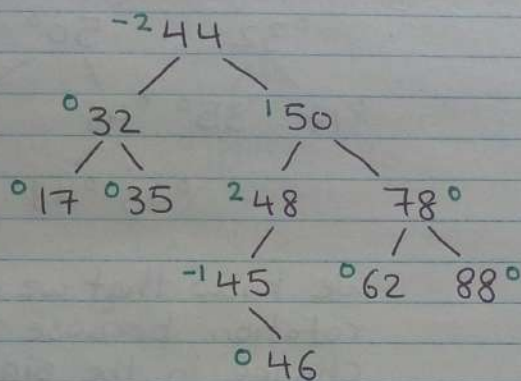 -2 44
0 32 1 50
0 17 0 35 2 48 78 0
-1 45 0 62 88 0
0 46